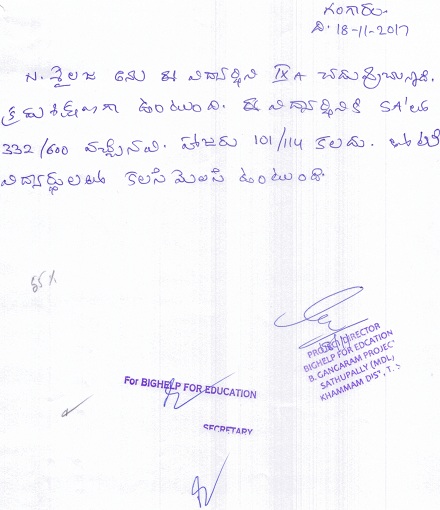 గంగారం.
ది. 18-11-2017
N. శైలజ అను ఈ విద్యార్థిని IX A చదువుచున్నది.
క్రమశిక్షణగా ఉంటుంది. ఈ విద్యార్థినికి SA'లలో
332/600 వచ్చినవి. హాజరు 101/114 కలదు. తోటి
విద్యార్థులతో కలసి మెలసి ఉంటుంది.
85%
PROJECT DIRECTOR
BIGHELP FOR EDCATION
B. GANGARAM PROJEC
SATHUPALLY (MDL)
KHAMMAM DIS", T.S
For BIGHELP FOR EDUCATION
SECRETARY